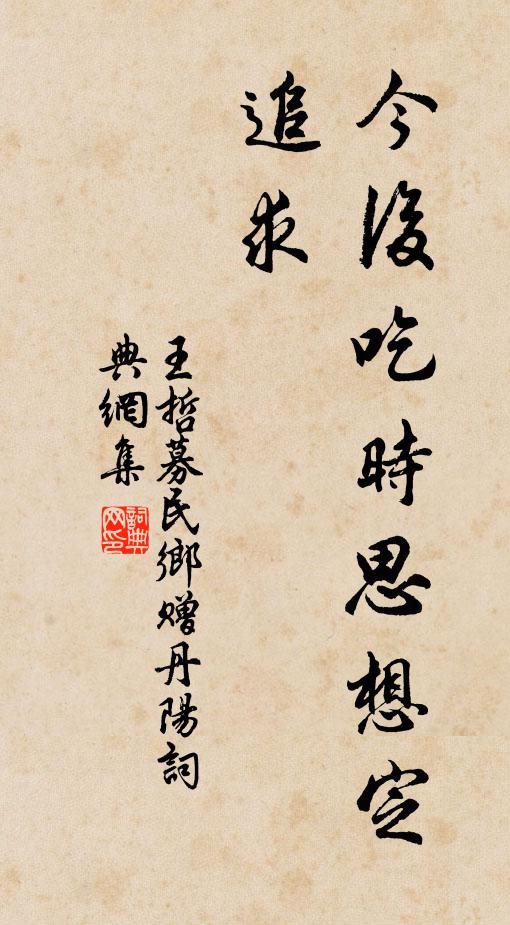 今後吃時思想定
追求
王哲募民鄉贈丹陽詞
典網集
詞典
网印